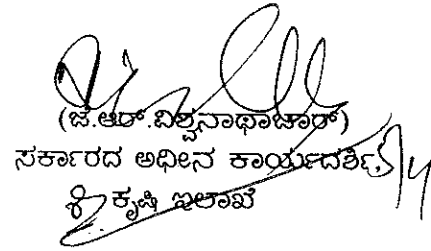 (ಜಿ.ಆರ್.ವಿಶ್ವನಾಥಾಚಾರ್)
ಸರ್ಕಾರದ ಅಧೀನ ಕಾರ್ಯದರ್ಶಿ,
ಕೃಷಿ ಇಲಾಖೆ